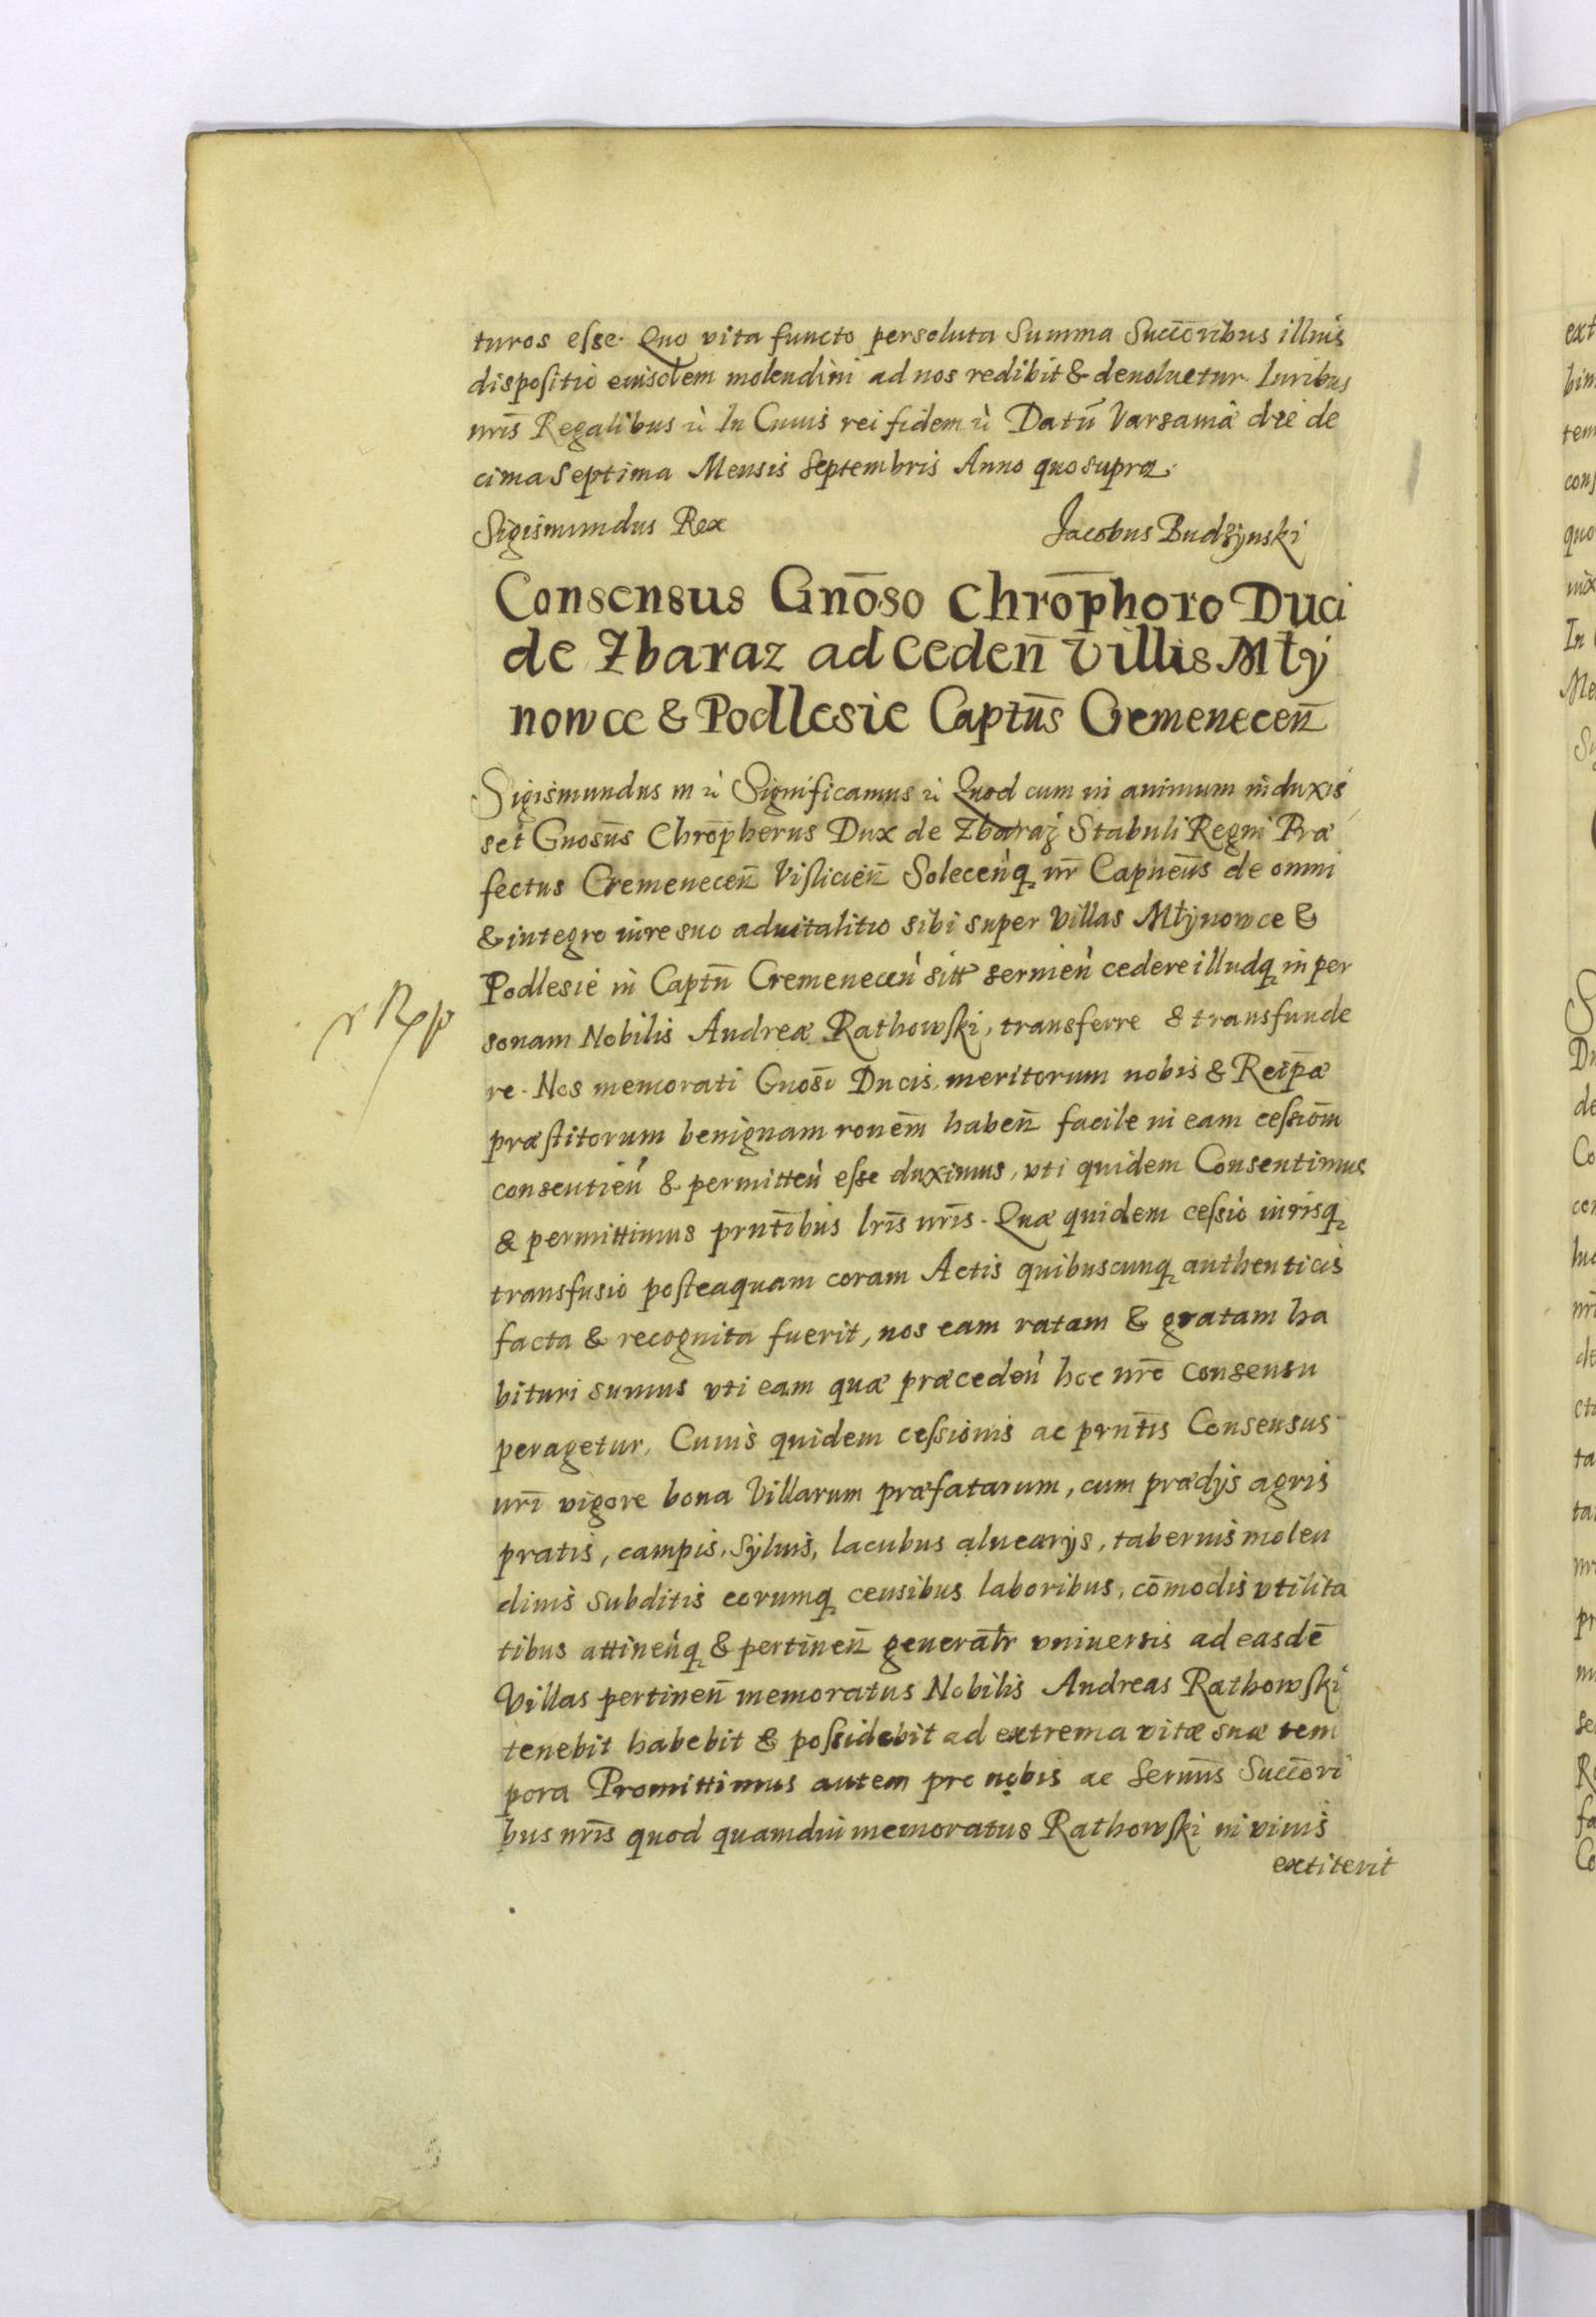 turos esse. Quo vita functo persoluta Summa Succõribus illius
dispositio eiusdem molendini ad nos redibit & devoluetur. Iuribus
nrĩs Regalibus &c̀ In Cuius rei fidem &c̀ Datũ Varsaviæ die de
cima Septima Mensis Septembris Anno quo supra.
Sigismundus Rex
Jacobus Budzÿnski
Consensus Gnõso Chrõphoro Duci
de Zbaraz ad Cedeñ Villis Młÿ
nowce & Podlesie Captũs Cremeneceñ
Sigismundus III &c̀ Significamus &c̀ Quod cum in animum induxis
set Gnosũs Chrõpherus Dux de Zbaraż Stabuli Regni Præ
fectus Cremeneceñ Visliciеñ Soleceñq nr̃ Capneũs de omni
& integro iure suo aduitalitio sibi super Villas Młÿnowce &
Podlesie in Captũ Cremeneceñ sitt servieñ cedere illudq in per
sonam Nobilis Andreæ Rathowski, transferre & transfunde
re. Nos memorati Gnosĩ Ducis, meritorum nobis & Reip̃æ
præstitorum benignam ronẽm habeñ facile in eam cessiõm
consentieñ & permitteñ esse duximus, vti quidem Consentimus
& permittimus prnt̃ibus lrĩs nrĩs. Quæ quidem cessio iurisq
transfusio posteaquam coram Actis quibuscunq authenticis
facta & recognita fuerit, nos eam ratam & gratam ha
bituri sumus vti eam quæ præcedeñ hoc nrõ consensu
peragetur. Cuius quidem cessionis ac prnt̃is Consensus
nrĩ vigore bona Villarum præfatarum, cum prædijs agris
pratis, campis, Sÿluis, lacubus aluearijs, tabernis molen
dinis Subditis eorumq censibus laboribus, cõmodis vtilita
tibus attineñq & pertineñ generatr̃ vniuersis ad easdẽ
Villas pertineñ memoratus Nobilis Andreas Rathowski
tenebit habebit & possidebit ad extrema vitæ suæ tem
pora Promittimus autem pro nobis ac Sermĩs Succõri
bus nrĩs quod quamdiu memoratus Rathowski in viuis
extiterit